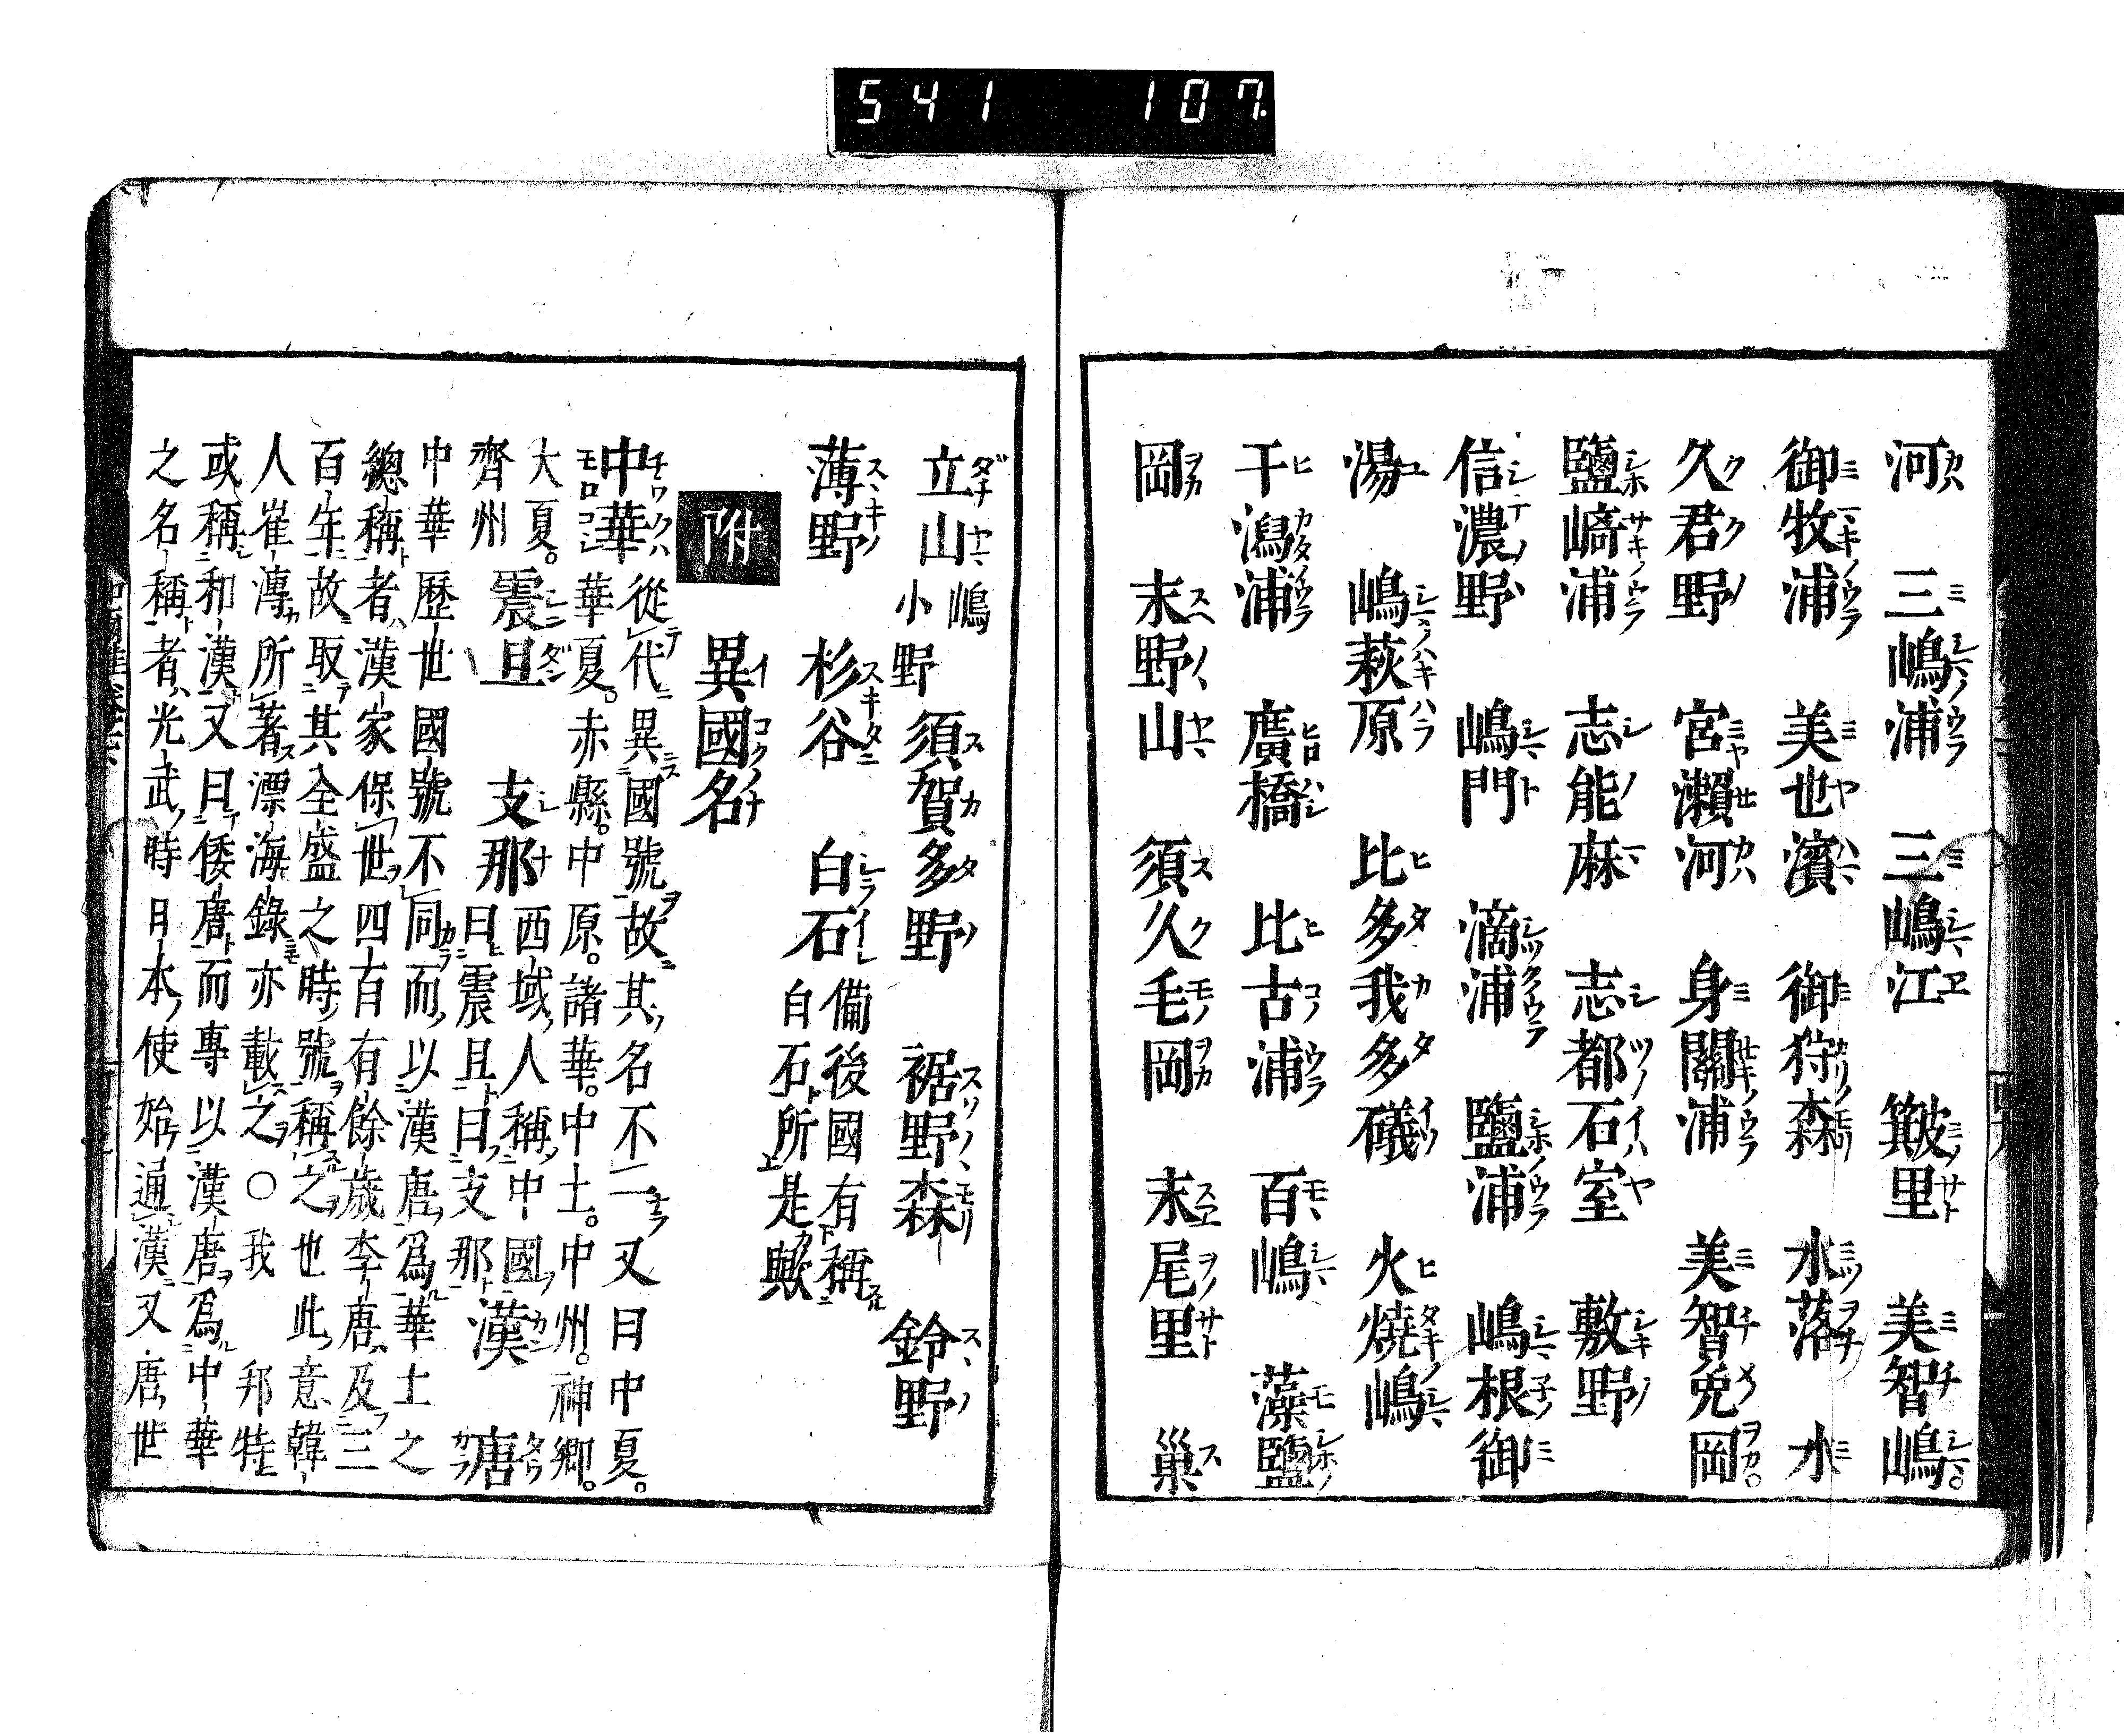 541 107.
河 三嶋浦 三嶋江 皺里 美智嶋。
御牧浦 美也濱 御狩森 水落 水
久君野 宮瀨河 身關浦 美智兌岡。
鹽﨑浦 志能麻 志都石室 敷野
信濃野 嶋門 滴浦 鹽浦 嶋根御
湯 嶋萩原 比多我多礒 火燒嶋
干潟浦 廣橋 比古浦 百嶋 藻鹽
岡 末野山 須久毛岡 末尾里 巢
立山 嶋小野 須賀多野 裾野森 鈴野
薄野 杉谷 白石 備後國有稱白石所是歟
附 異國名
中華 從代異國號故其名不一又曰中夏。
華夏。赤縣。中原。諸華。中土。中州。神鄉。
大夏。齊州 震旦 支那 西域人稱中國曰震旦曰支那 漢 唐
中華歷世國號不同而以漢唐爲華土之
總稱者漢家保世四百有餘歲李唐及三
百年故取其全盛之時號稱之也此意韓
人崔溥所著漂海錄亦載之○我邦特
或稱和漢又曰倭唐而專以漢唐爲中華
之名稱者光武時日本使始通漢又唐世